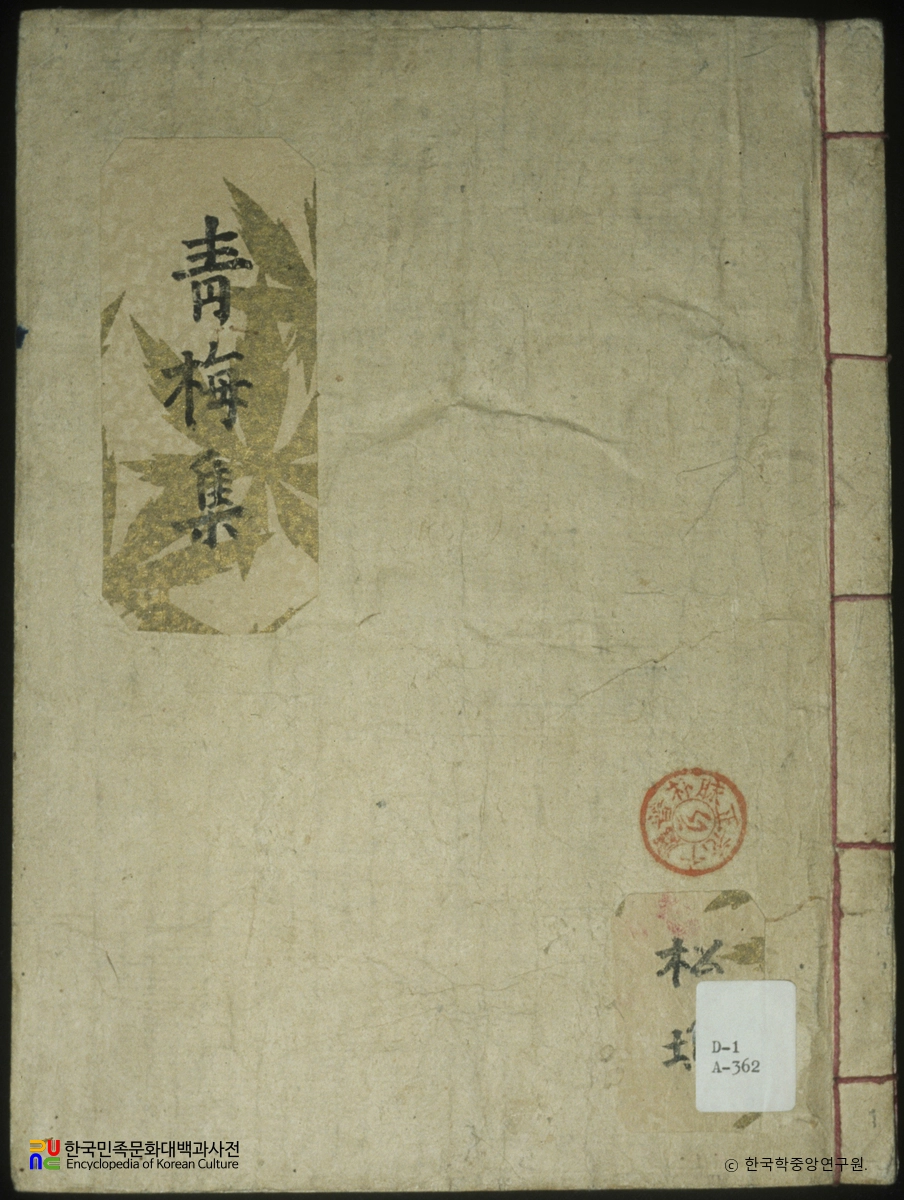 青梅集
松
D-1
A-362
한국민족문화대백과사전
Encyclopedia of Korean Culture
© 한국학중앙연구원.